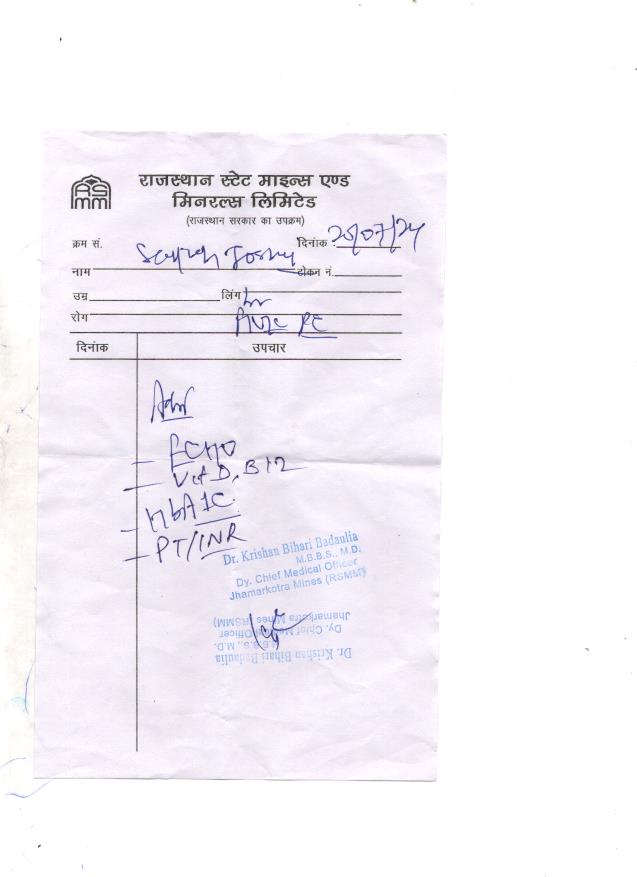 RS
MM
राजस्थान स्टेट माइन्स एण्ड
मिनरल्स लिमिटेड
(राजस्थान सरकार का उपक्रम)
क्रम सं. दिनांक 25/07/24
नाम टोकन नं.
उम्र लिंग
रोग
दिनांक उपचार
Adv
- ECHO
- Vit D, B12
- HbA1C
- PT/INR
Dr. Krishan Bihari Badaulia
M.B.B.S., M.D.
Dy. Chief Medical Officer
Jhamarkotra Mines (RSMM)
Dr. Krishan Bihari Badaulia
M.B.B.S., M.D.
Dy. Chief Medical Officer
Jhamarkotra Mines (RSMM)